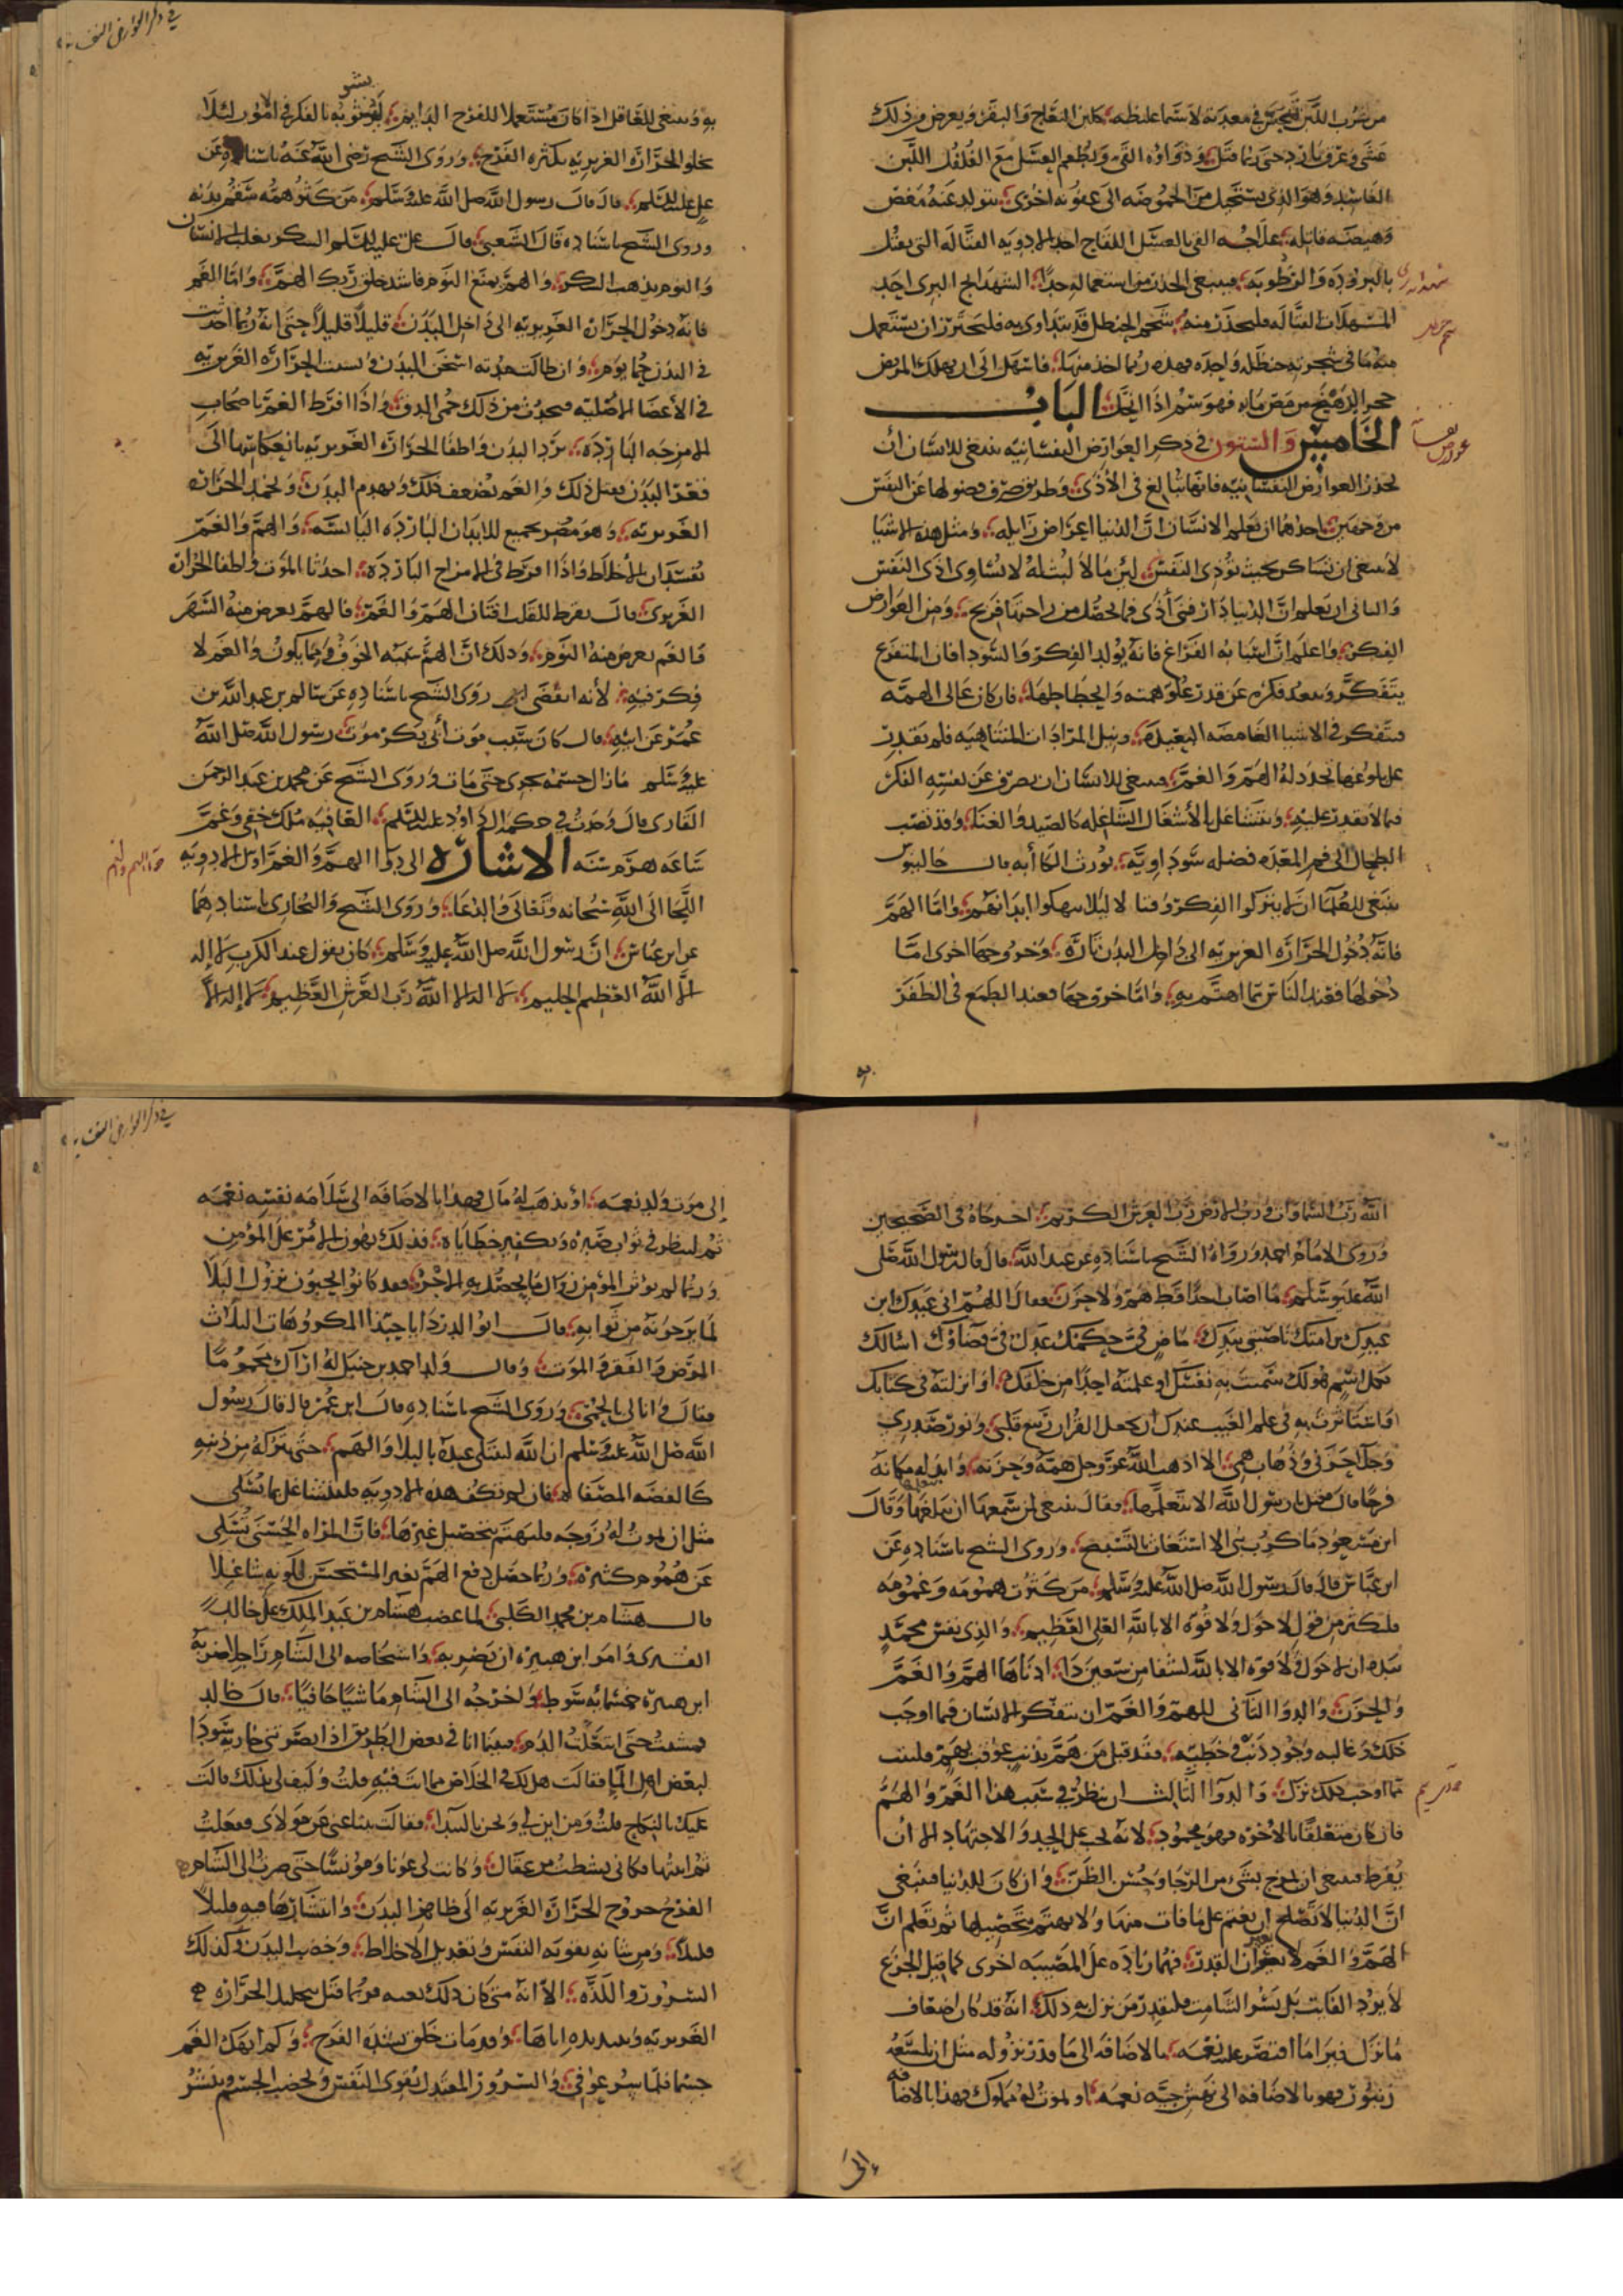 من شرب اللبن فيتجبن في معدته لا سيما غليظه كلبن النعاج والبقر ويعرض من ذلك
غشي وعرق بارد حتى ربما قتل ودواؤه القيء ويطعم العسل مع الفلفل اللبن
الفاسد وهو الذي يستحيل من الحموضه الى عفونه اخرى يتولد عنه مغص
وهيضه قاتله علاجه القي بالعسل اللفاح احد الادويه القتاله التي يقتل
بالبروده والرطوبه فينبغي الحذر من استعماله جدا الشهدانج البري احد
المسهلات القتاله فليحذر منه شحم الحنظل قد يتداوى به فليحترز ان يستعمل
منه ما في شجرته حنظله واحده فهذه ربما اخذ منها فاسهل الى ان يهلك المريض
فهو سم اذا انحل الباب
الخامس والستون في ذكر العوارض النفسانيه ينبغي للانسان ان
يحذر العوارض النفسانيه فانها تبالغ في الاذى وطريق صرف فضولها عن النفس
من وجهين احدهما ان يعلم الانسان ان الدنيا اعراض زايله ومثل هذه الاشيا
لا ينبغي ان تساكن بحيث تؤذي النفس لان ما لا لبث له لا يساوي اذى النفس
والثاني ان يعلم ان الدنيا دار فيها اذى فما يحصل من راحتها فربح ومن العوارض
الفكر واعلم ان اسبابه الفراغ فانه يولد الفكر والسودا فان المتفرغ
يتفكر وبعد فكره عن قدر علو همته وانحطاطها فان كان عالي الهمه
فيتفكر في الاشيا الغامضه البعيده ونيل المرادات المتناهيه فلم يقدر
على بلوغها تجدد له الهم والغم فينبغي للانسان ان يصرف عن نفسه الفكر
فيما لا يقدر عليه ويتشاغل بالاشغال الشاغله كالصيد والغنا وقد تصب
الطحال الى فم المعده فضله سوداويه تورث الكآبه قال جالينوس
ينبغي للعلما ان لا يتركوا الفكر وقتا لا ليلا ينهكوا ابدانهم واما الهم
فانه دخول الحراره الغريزيه الى داخل البدن تاره وخروجها اخرى اما
دخولها فعند الناس مما اهتم به واما خروجها فعند الطمع في الظفر
به وينبغي للعاقل اذا كان مستعملا للفرح الدايم ان يشوبه بالفكر في الامور لئلا
يخلو الحراره الغريزيه بكثره الفرح وروى الشيخ رضي الله عنه باسناده عن
علي عليه السلم قال قال رسول الله صلى الله عليه وسلم من كثر همه سقم بدنه
وروى الشيخ باسناده قال الشعبي قال علي عليه السلم السكر يغلب الانسان
والنوم يذهب السكر والهم يمنع النوم فاشد خلق ربك الهم واما الغم
فانه دخول الحراره الغريزيه الى داخل البدن قليلا قليلا حتى انه ربما احدثت
في البدن حمى يوم وان طالت مدته اسخن البدن الحراره الغريزيه
في الاعضا الاصليه فيحدث من ذلك حمى الدق واذا افرط الغم باصحاب
الامزجه البارده برد البدن واطفا الحراره الغريزيه بانعكاسها الى
قعر البدن فيقتل ذلك والغم يضعف ذلك ويهدم البدن ويخمد الحراره
الغريزيه وهو مضر بجميع الابدان البارده اليابسه والهم والغم
يفسدان الاخلاط واذا افرط في الامزاج البارده احدثا الموت واطفا الحرارة
الغريزي قال بقراط للقلب افتان الهم والغم فالهم يعرض منه السهر
والغم يعرض منه النوم وذلك ان الهم سببه الخوف مما يكون والغم لا
فكر فيه لانه انقضى روى الشيخ باسناده عن سالم بن عبد الله بن
عمر عن ابيه قال كان سبب موت ابي بكر موت رسول الله صلى الله
عليه وسلم ما زال جسمه يجري حتى مات وروى الشيخ عن محمد بن عبد الرحمن
القاري قال وجدت في حكمه ال داود عليه السلم العافيه ملك خفي وغم
ساعه هرم سنه الاشاره الى دوا الهم والغم اول الادويه
اللجا الى الله سبحانه وتعالى والدعا وروى الشيخ والبخاري باسنادهما
عن ابن عباس ان رسول الله صلى الله عليه وسلم كان يقول عند الكرب لا اله
الا الله العظيم الحليم لا اله الا الله رب العرش العظيم لا اله الا
الله رب السماوات ورب الارض رب العرش الكريم اخرجاه في الصحيحين
وروى الامام احمد ورواه الشيخ باسناده عن عبد الله قال قال رسول الله صلى
الله عليه وسلم ما اصاب احدا قط هم ولا حزن فقال اللهم اني عبدك ابن
عبدك بن امتك ناصيتي بيدك ماض في حكمك عدل في قضاؤك اسالك
بكل اسم هو لك سميت به نفسك او علمته احدا من خلقك او انزلته في كتابك
او استاثرت به في علم الغيب عندك ان تجعل القران ربيع قلبي ونور صدري
وجلا حزني وذهاب همي الا اذهب الله عز وجل همه وحزنه وابدله مكانه
فرجا قال فقيل يا رسول الله الا نتعلمها فقال ينبغي لمن سمعها ان يتعلمها وقال
ابن مسعود ما كرب نبي الا استغاث بالتسبيح وروى الشيخ باسناده عن
ابن عباس قال قال رسول الله صلى الله عليه وسلم من كثرت همومه وغمومه
فليكثر من قول لا حول ولا قوه الا بالله العلي العظيم والذي نفس محمد
بيده ان لا حول ولا قوه الا بالله لشفا من سبعين دا ادناها الهم والغم
والحزن والدوا الثاني للهم والغم ان يتفكر الانسان فيما اوجب
ذلك وغالبه وجود ذنب وخطيه فقد قيل من هم بذنب عوقب بهم فليتب
مما اوجب ذلك نزل والدوا الثالث ان ينظر في سبب هذا الغم والهم
فان كان متعلقا بالاخره فهو محمود لانه يحب على الجد والاجتهاد الا ان
يفرط فينبغي ان يمزج بشيء من الرجا وحسن الظن وان كان للدنيا فينبغي
ان الدنيا لا تصلح ان يغتم على ما فات منها ولا يهتم بتحصيلها ثم تعلم ان
الهم والغم لا يغيران القدر فهما زياده على المصيبه اخرى كما قيل الجزع
لا يرد الفايت بل يسر الشامت فليقدر من نزل به ذلك انه قد كان اضعاف
ما نزل فيرا ما اقتصر عليه نعمه بالاضافه الى ما قدر نزوله مثل ان يلسعه
زنبور فهو بالاضافه الى نهش حيه نعمه او يموت له مملوك فهذا بالاضافه
الى
الى موت ولد نعمه او يذهب له مال فهذا بالاضافه الى سلامه نفسه نعمه
ثم لينظر في ثواب صبره وتكفير خطاياه فذلك يهون الامر على المؤمن
وربما لم يؤثر المؤمن زوال ما يحصل به الاجر فقد كانوا يحبون نزول البلا
لما يرجونه من ثوابه قال ابو الدردا يا حبذا المكروهات الثلاث
المرض والفقر والموت وقال ولد احمد بن حنبل له اراك محموما
فقال وانا لي بالحمى وروى الشيخ باسناده قال ابن عمر قال قال رسول
الله صلى الله عليه وسلم ان الله ليبتلي عبده بالبلا والهم حتى يتركه من ذنبه
كالفضه المصفاه فان لم تكف هذه الادويه فليتشاغل بما يسلي
مثل ان يموت له زوجه فليهتم بتحصيل غيرها فان المراه الحسنى تسلي
عن هموم كثيره وربما حصل دفع الهم بغير المستحسن لكونه شاغلا
قال هشام بن محمد الكلبي لما غضب هشام بن عبد الملك على خالد
القسري وامر ابن هبيره ان يضربه واشخاصه الى الشام راجلا ضربه
ابن هبيره خمسمائه سوط واخرجه الى الشام ماشيا حافيا قال خالد
فمشيت حتى انتعلت الدم فبينا انا في بعض الطريق اذ ابصرتني جاريه سودا
لبعض اهل الما فقالت هل لك في الخلاص مما انت فيه قلت وكيف لي بذلك قالت
عليك بالنكاح قلت ومن اين لي ونحن بالبيدا فقالت بتاعني من مولاي ففعلت
ثم ابتعتها فكاني نشطت من عقال وكانت لي عونا ومؤنسا حتى صرت الى الشام
الفرح خروج الحراره الغريزيه الى ظاهر البدن وانتشارها فيه قليلا
قليلا ومن شانه تقويه النفس وتعديل الاخلاط وخصب البدن وكذلك
السرور واللذه الا انه متى كان ذلك بغته فربما قتل بتحليل الحراره
الغريزيه وتبديده اياها وقد مات خلق بشده الفرح وكم انهك الغم
جسما فلما سر عوفي والسرور المعتدل يقوي النفس ويخصب الجسم وينشر